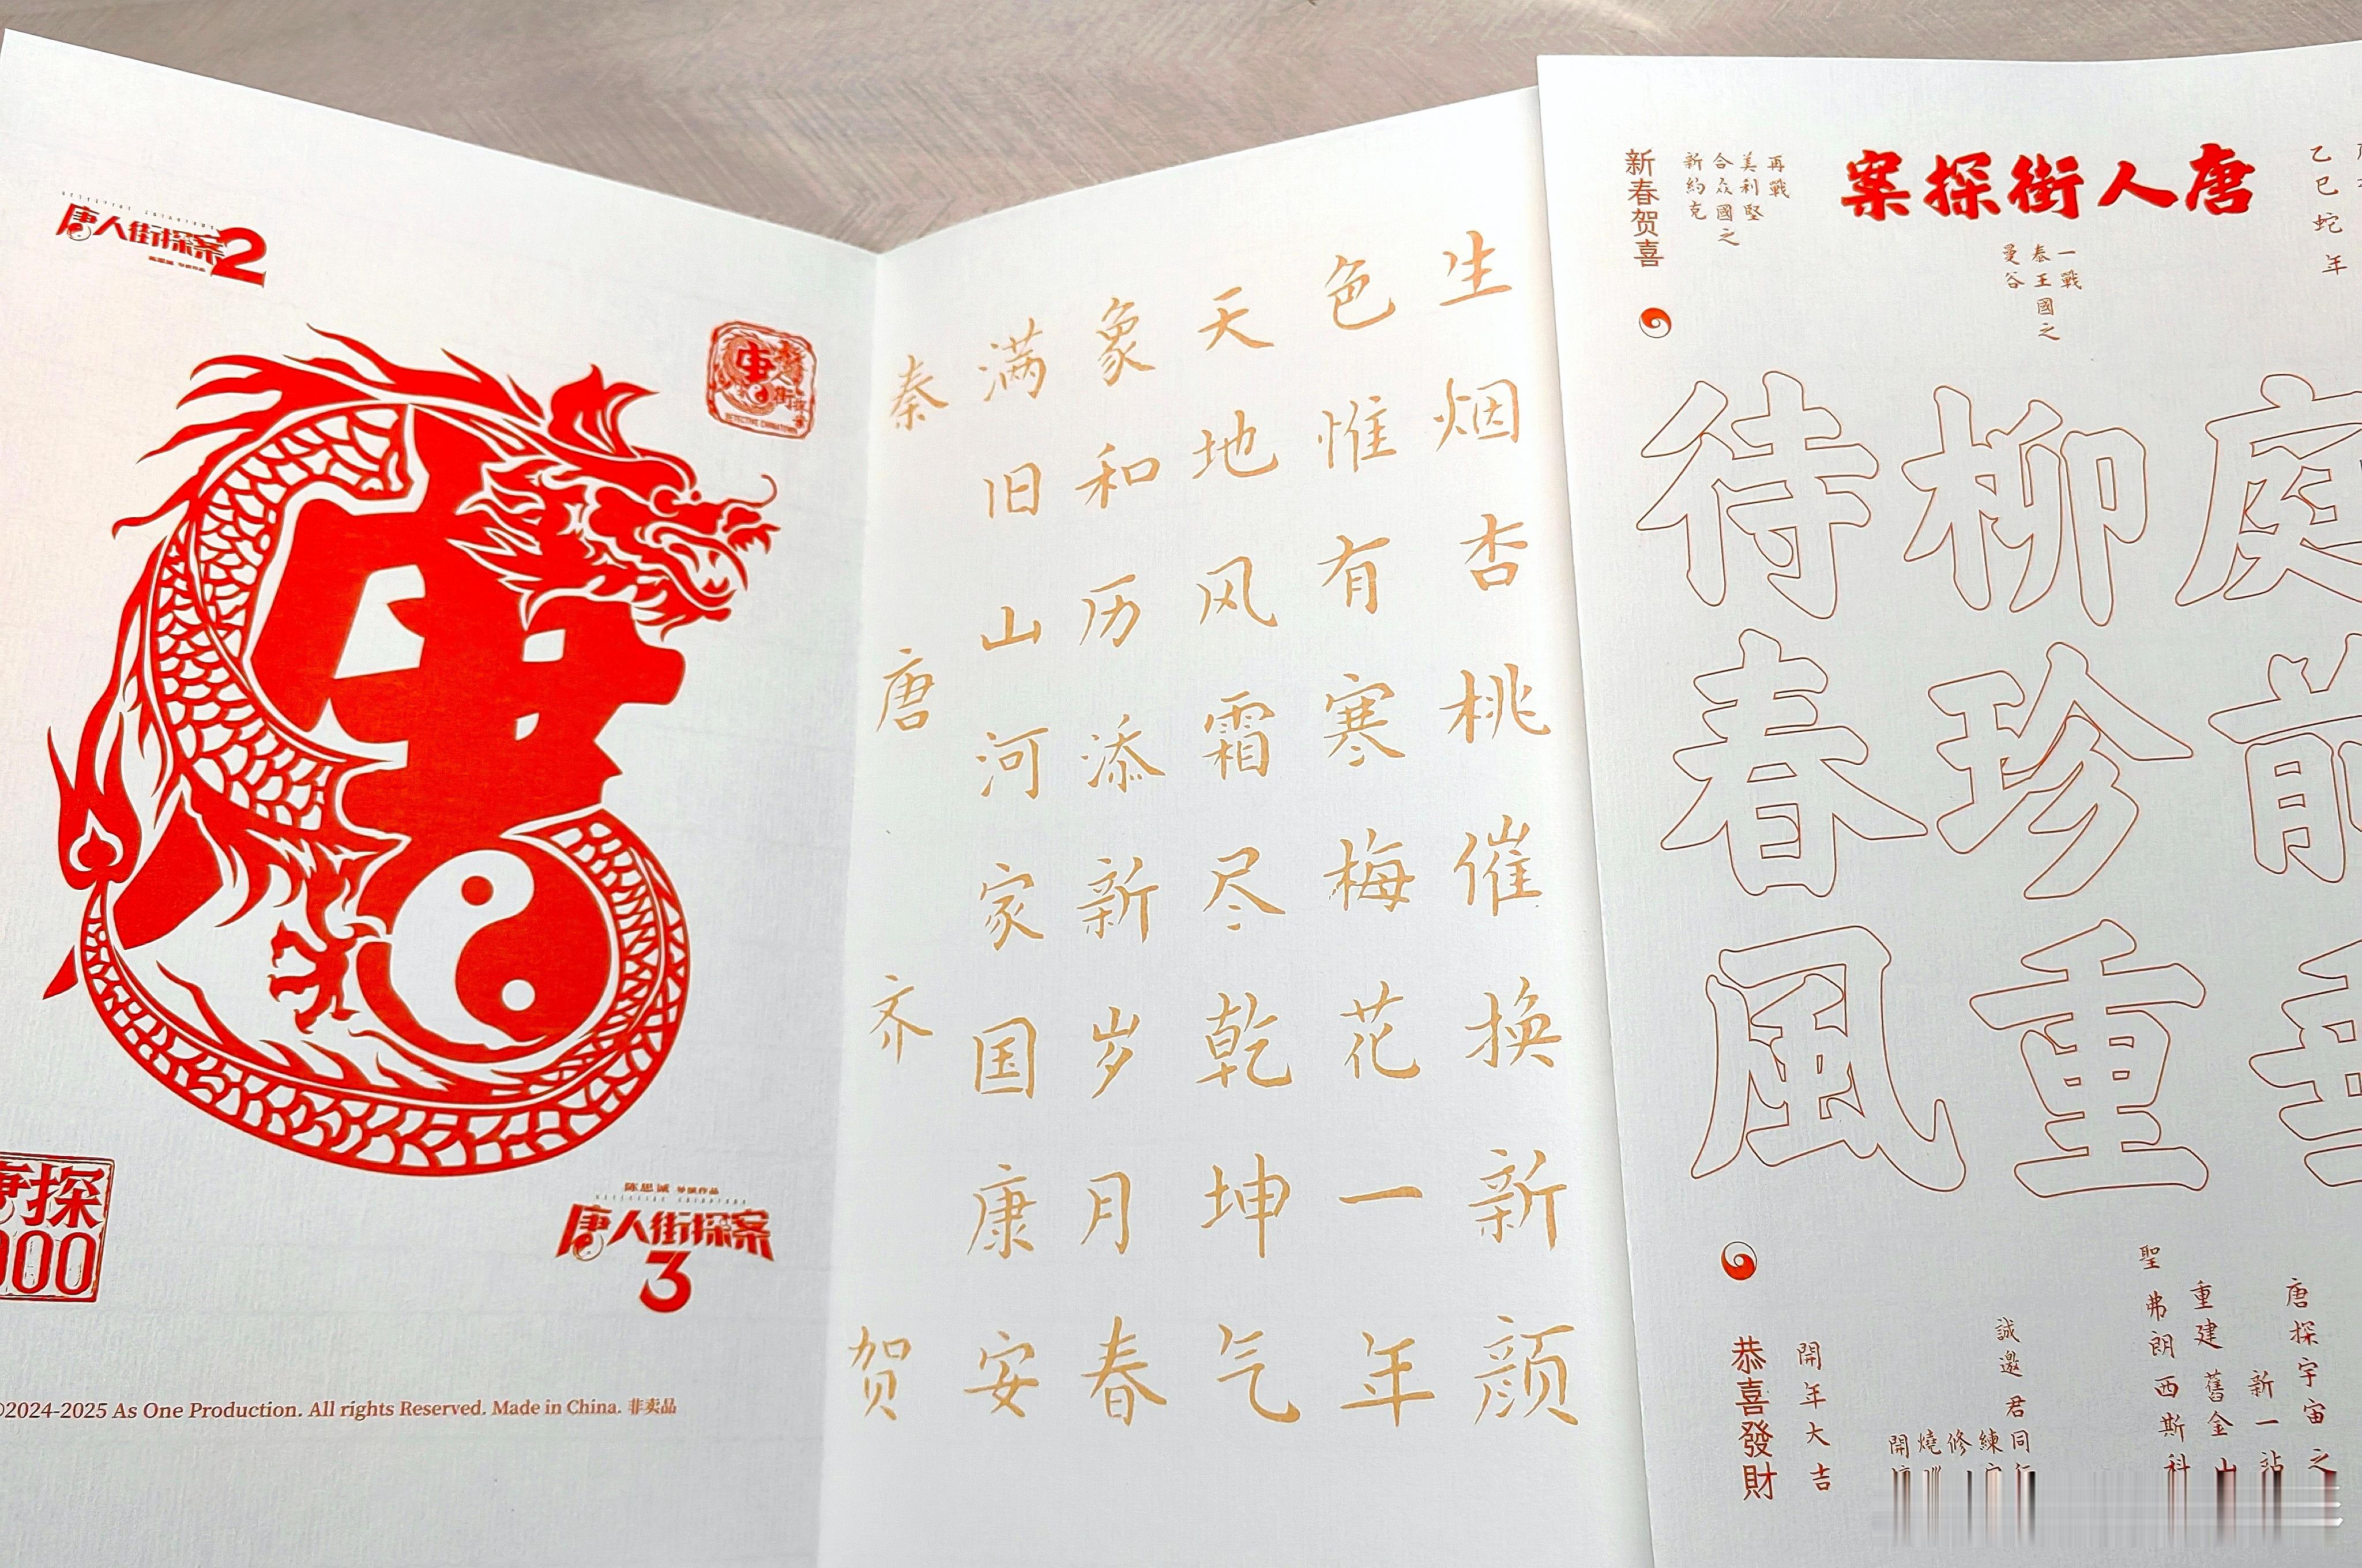 唐人街探案2
唐探
陈思诚 导演作品
唐人街探案
3
©2024-2025 As One Production. All rights Reserved. Made in China. 非卖品
生烟杏桃催换新颜
色惟有寒梅花一年
天地风霜尽乾坤气
象和历添新岁月春
满旧山河家国康安
秦唐齐贺
乙巳蛇年
唐人街探案
一戰
泰王國之
曼谷
再戰
美利堅
合众國之
新約克
新春贺喜
庭前
柳珍重
待春風
唐探宇宙之
新一站
重建舊金山
聖弗朗西斯科
誠邀君同
開年大吉
恭喜發財